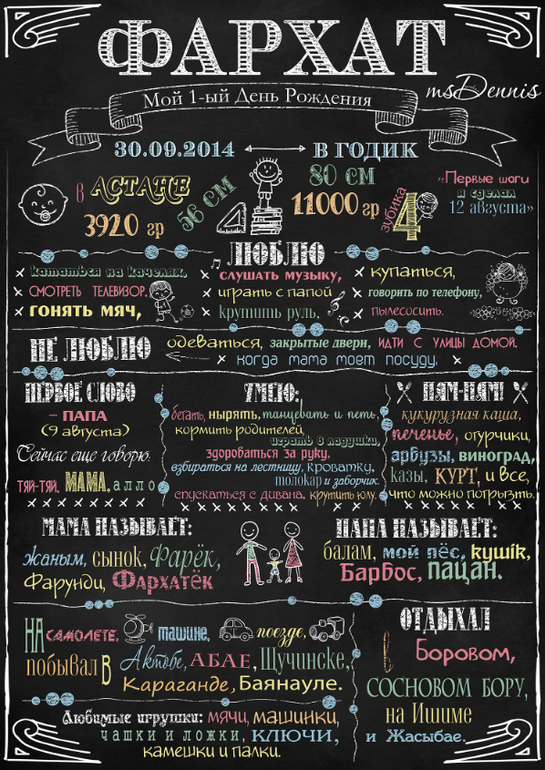 ФАРХАТ
msDennis
Мой 1-ый День Рождения
30.09.2014
В ГОДИК
в АСТАНЕ
3920 гр
56 см
80 см
11000 гр
4 зубика
«Первые шаги
я сделал
12 августа»
ЛЮБЛЮ
кататься на качелях,
СМОТРЕТЬ ТЕЛЕВИЗОР,
гонять мяч,
слушать музыку,
играть с папой
крутить руль,
купаться,
говорить по телефону,
пылесосить.
НЕ ЛЮБЛЮ
одеваться, закрытые двери, идти с улицы домой.
когда мама моет посуду.
ПЕРВОЕ СЛОВО
– ПАПА
(9 августа)
Сейчас еще говорю:
тяй-тяй, МАМА, алло
УМЕЮ:
бегать, нырять, танцевать и петь,
кормить родителей,
играть в ладушки,
здороваться за руку,
взбираться на лестницу, кроватку,
толокар и заборчик.
спускаться с дивана, крутить юлу.
НЯМ-НЯМ!
кукурузная каша,
печенье, огурчики,
арбузы, виноград,
казы, КУРТ, и все,
что можно погрызть.
МАМА НАЗЫВАЕТ:
жаным, сынок, Фарёк,
Фарунди, Фархатёк
ПАПА НАЗЫВАЕТ:
балам, мой пёс, күшік,
Барбос, пацан.
НА самолете, машине, поезде,
побывал В Актобе, АБАЕ, Щучинске,
Караганде, Баянауле.
Любимые игрушки: мячи, машинки,
чашки и ложки, ключи,
камешки и палки.
ОТДЫХАЛ
в Боровом,
СОСНОВОМ БОРУ,
на Ишиме
и Жасыбае.